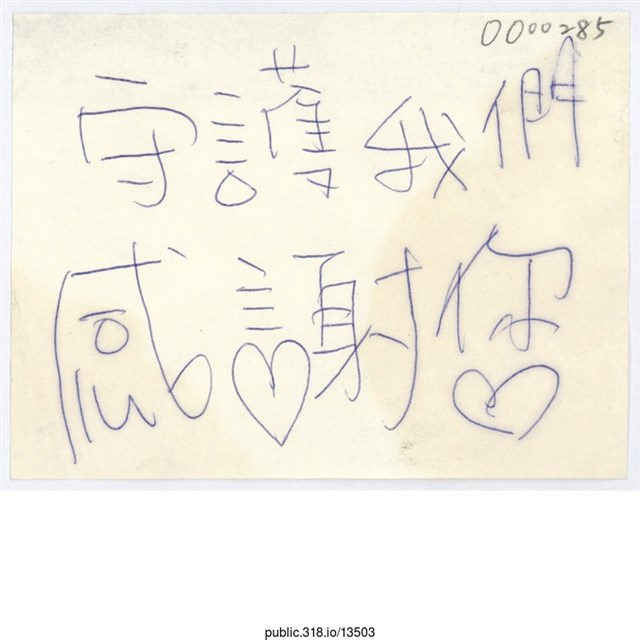 0000285
守護我們
感謝你
public.318.io/13503